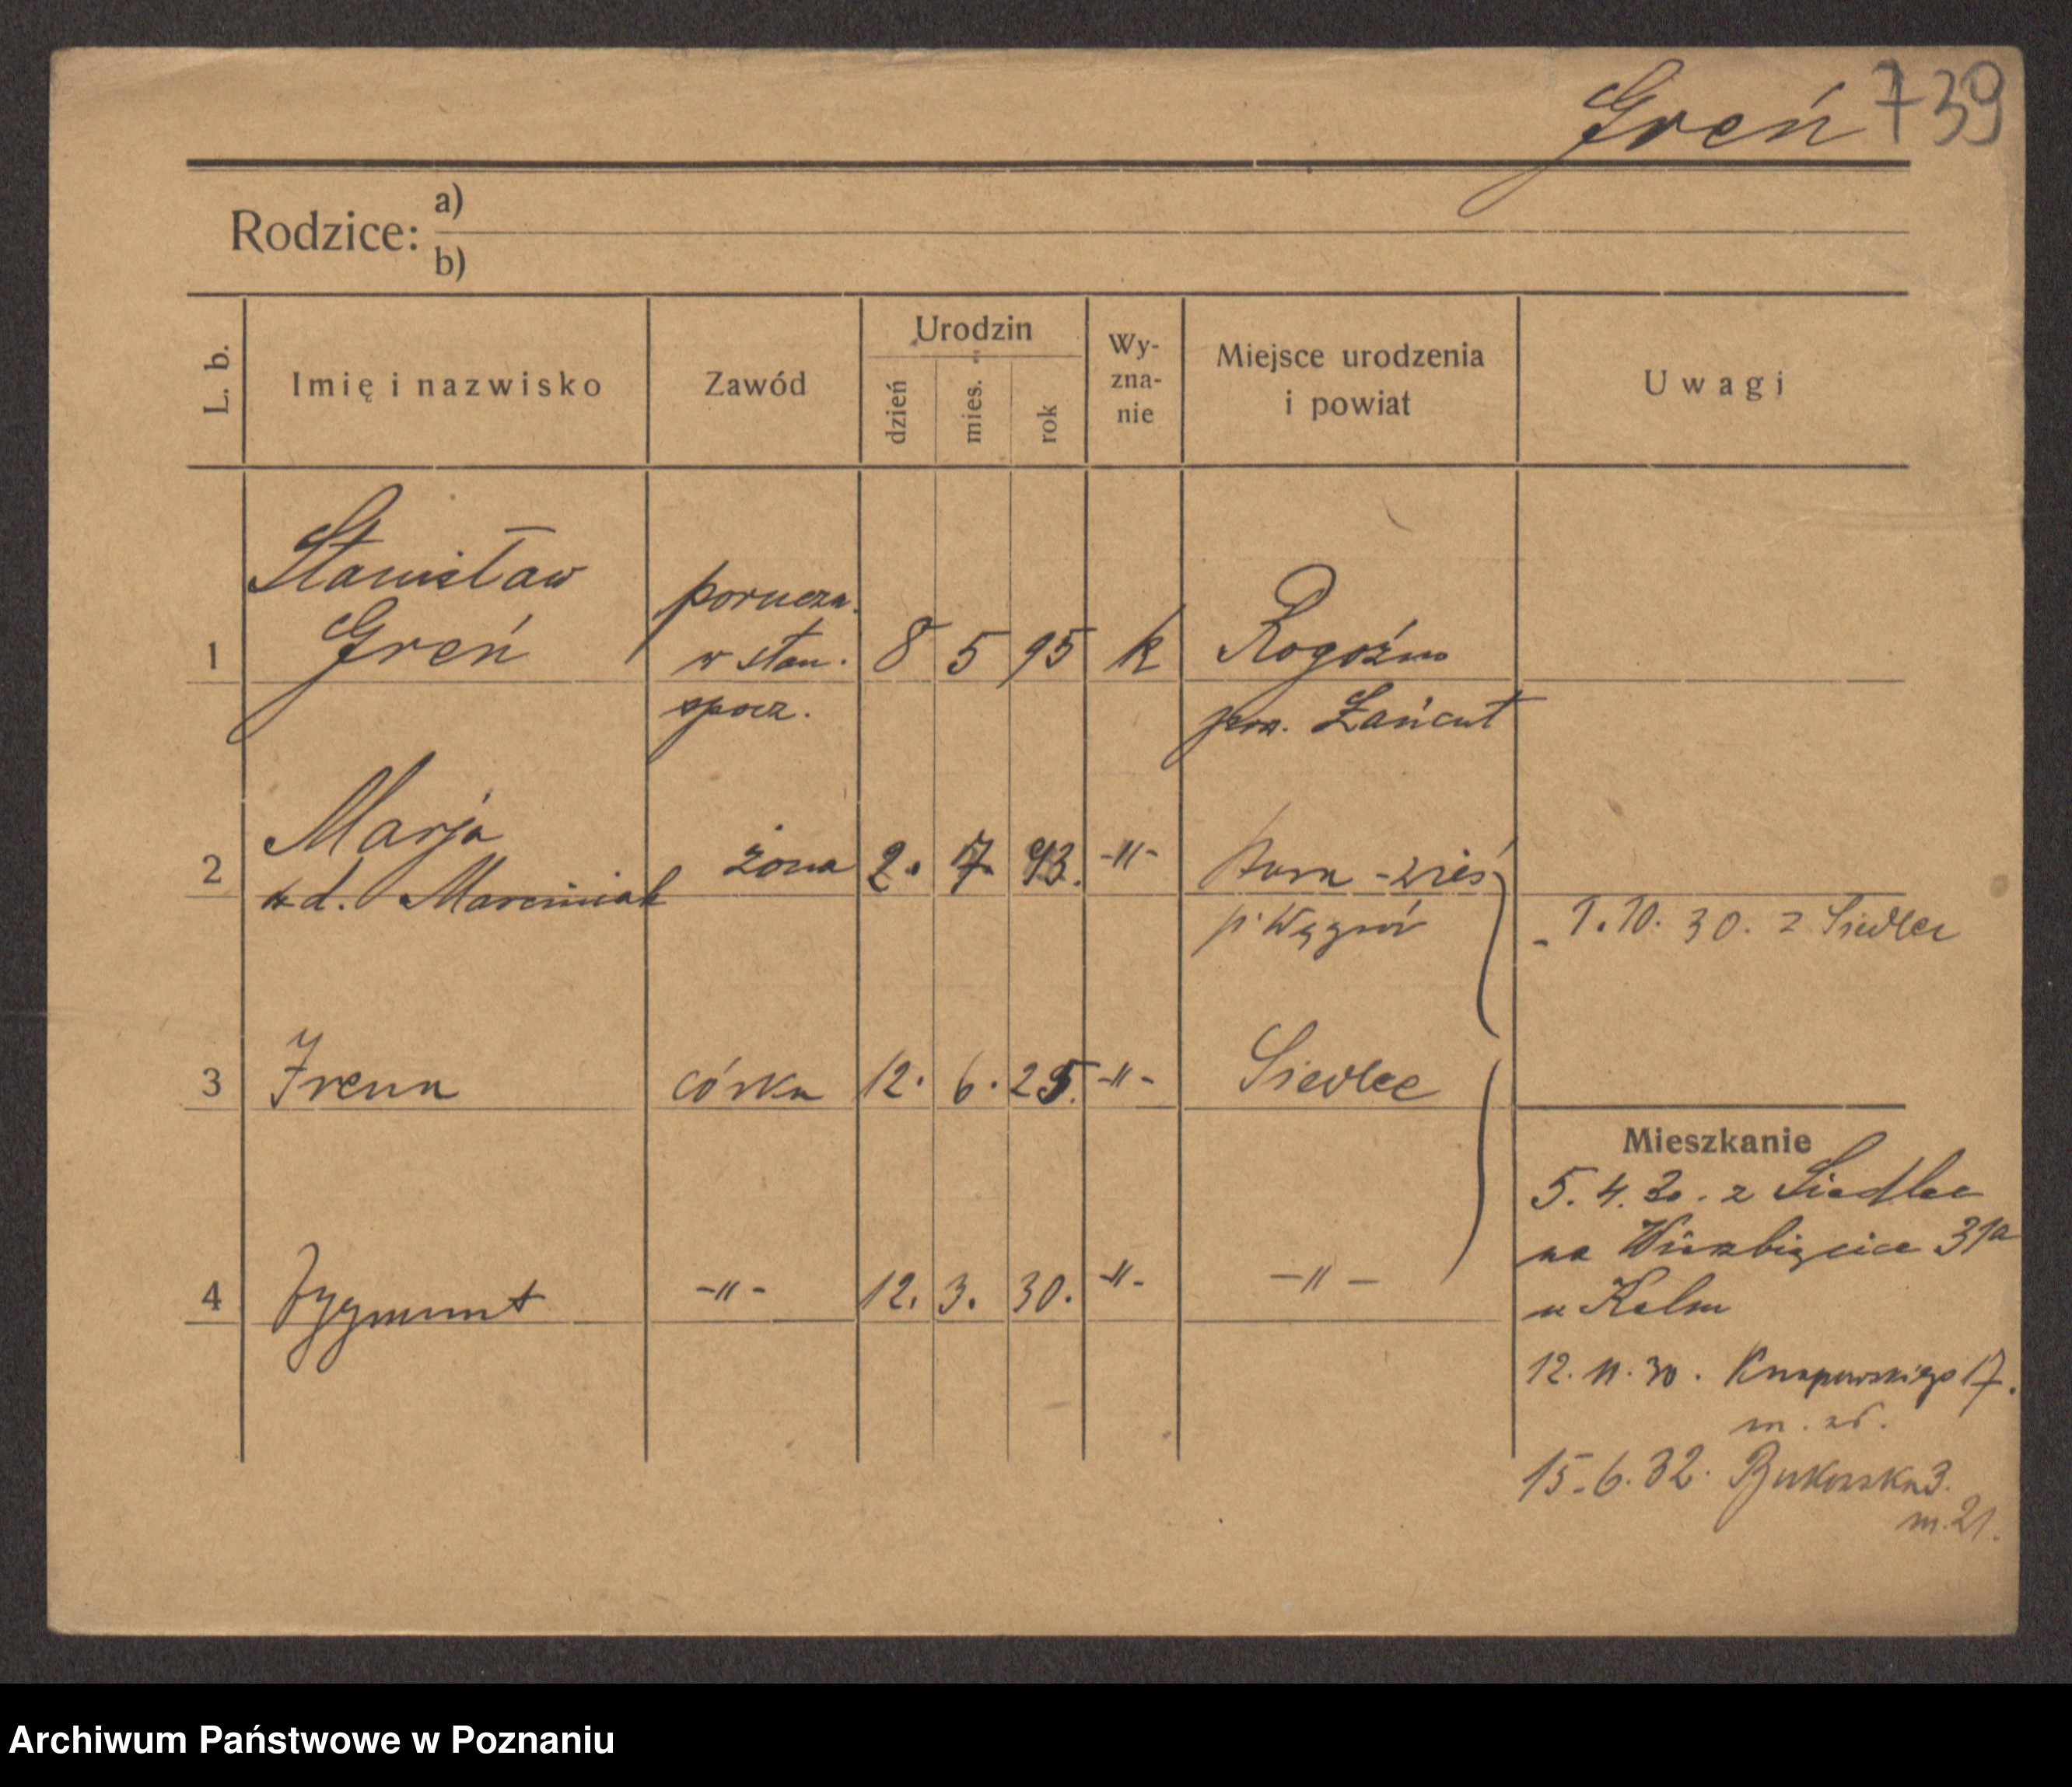 Greń 739
Rodzice: a)
b)
L. b.
Imię i nazwisko
Zawód
Urodzin
dzień
mies.
rok
Wy-
zna-
nie
Miejsce urodzenia
i powiat
Uwagi
Stanisław
poruczn.
1 Greń w stan. 8 5 95 k Rogoźno
spocz. pow. Łańcut
Marja
2 żona 2. 7. 93. -"- -wieś
z d. Marciniak
p. Węgrów
- 1.10.30. z Siedlec
3 Irena córka 12. 6. 25. -"- Siedlce
4 Zygmunt -"- 12. 3. 30. -"- -"-
Mieszkanie
5.4.30. z Siedlec
na Wierzbięcice 31a
u Kelm
12.11.30. Knapowskiego 17.
m.
15.6.32. Bukowska 3.
m. 21.
Archiwum Państwowe w Poznaniu